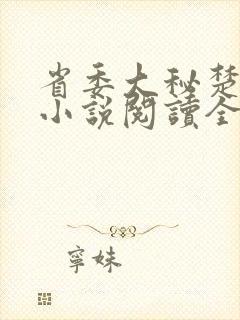 省委大秘楚
小說閱讀全
寧妹